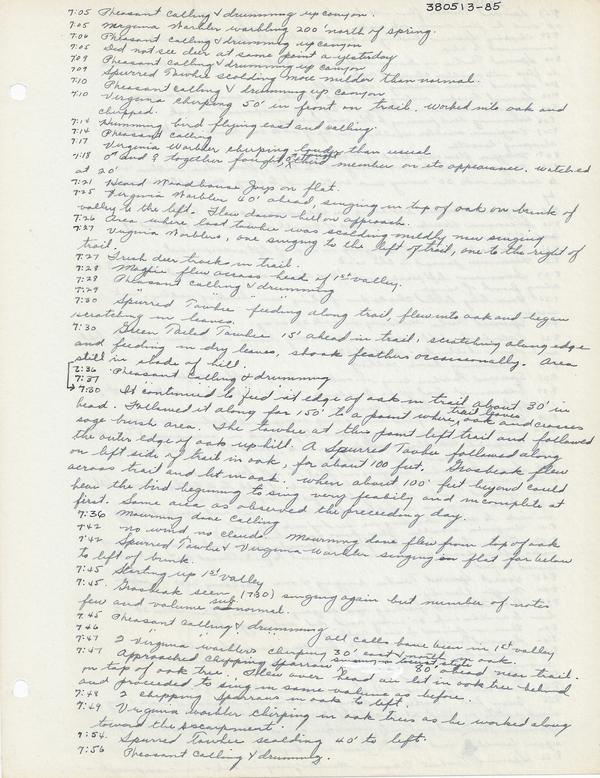 380513-85
7:05 Pheasant calling & drumming up canyon.
7:05 Virginia Warbler warbling 200' north of spring.
7:06 Pheasant calling & drumming up canyon
7:06 Did not see deer at same point a yesterday
7:09 Pheasant calling & drumming up canyon
7:09 Spurred Towhee scolding more milder than normal.
7:10 Pheasant calling & drumming up canyon
7:10 Virginia chirping 50' in front on trail. Worked into oak and
chirped.
7:14 Humming bird flying east and calling.
7:14 Pheasant calling
7:17 Virginia Warbler chirping louder than usual
7:18 ♂ and ♀ together fought third member on its appearance. Watched
at 20'
7:21 Heard Woodhouse Jays on flat.
7:25 Virginia Warbler 40' ahead, singing in top of oak on brink of
valley to the left. Flew down hill on approach.
7:26 Area where last towhee was scolding mildly now singing
7:27 Virginia Warblers, one singing to the left of trail, one to the right of
trail.
7:27 Fresh deer tracks in trail.
7:28 Magpie flew across head of 1st valley.
7:28 Pheasant calling & drumming
7:29 " " " "
7:30 Spurred Towhee feeding along trail, flew into oak and began
scratching in leaves.
7:30 Green Tailed Towhee 15' ahead in trail, scratching along edge
and feeding in dry leaves, shook feathers occasionally. Area
still in shade of hill.
7:36 Pheasant calling & drumming
7:37
7:30 It continued to feed at edge of oak in trail about 30' in
head. Followed it along for 150' to a point where trail leaves oak and crosses
sage brush area. The towhee at this point left trail and followed
the outer edge of oak up hill. A Spurred Towhee followed along
on left side of trail in oak, for about 100 feet. Grosbeak flew
across trail and lit in oak. When about 100 feet beyond could
hear the bird beginning to sing very feabily and incomplete at
first. Same area as observed the preceeding day.
7:36 Mourning dove calling
7:42 No wind, no clouds. Mourning dove flew from top of oak
7:42 Spurred Towhee & Virginia Warbler singing on flat far below
to left of brink.
7:45 Starting up 1st valley
7:45 Grosbeak seen (730) singing again but number of notes
few and volume sub normal.
7:45 Pheasant calling & drumming
7:46 " " " all calls have been in 1st valley
7:47 2 Virginia warblers chirping 30' east & north oak.
7:47 Approached Chipping Sparrow 80' ahead near trail.
on top of oak tree. Flew over head and lit in oak tree behind
and proceeded to sing in same volume as before.
7:48 2 chipping Sparrows in oak to left.
7:49 Virginia warbler chirping in oak trees as he worked along
toward the escarpment.
7:54 Spurred Towhee scolding 40' to left.
7:56 Pheasant calling & drumming.